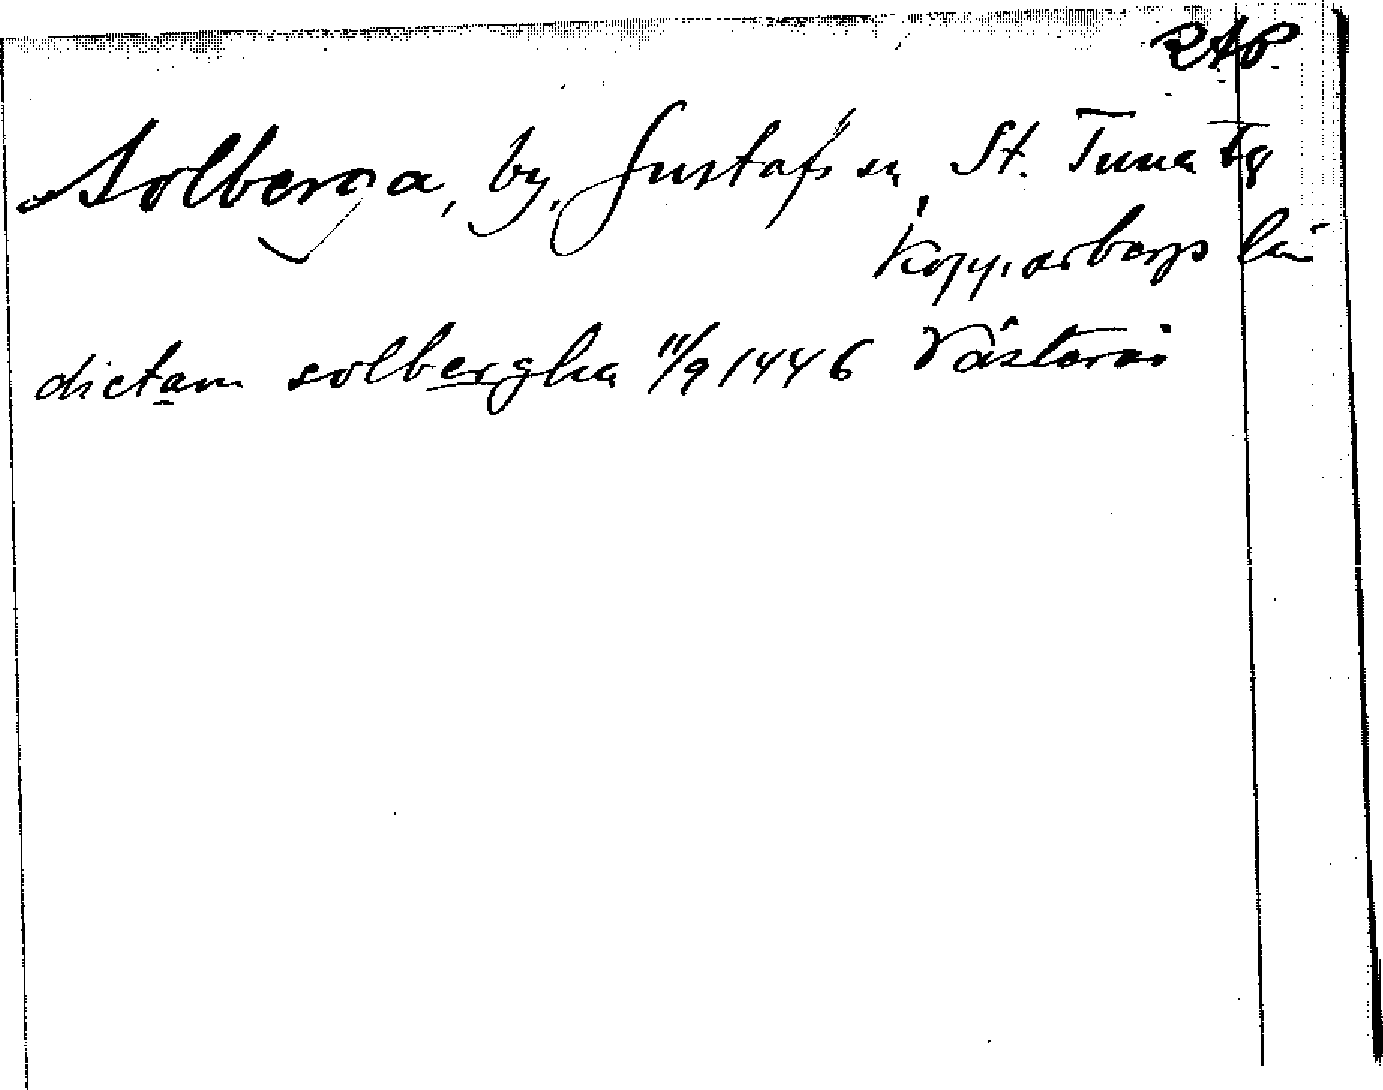 RAP
Solberga, by, Gustafs sn, St. Tuna tg
Kopparbergs län
dictam solbergha 11/9 1446 Västerås